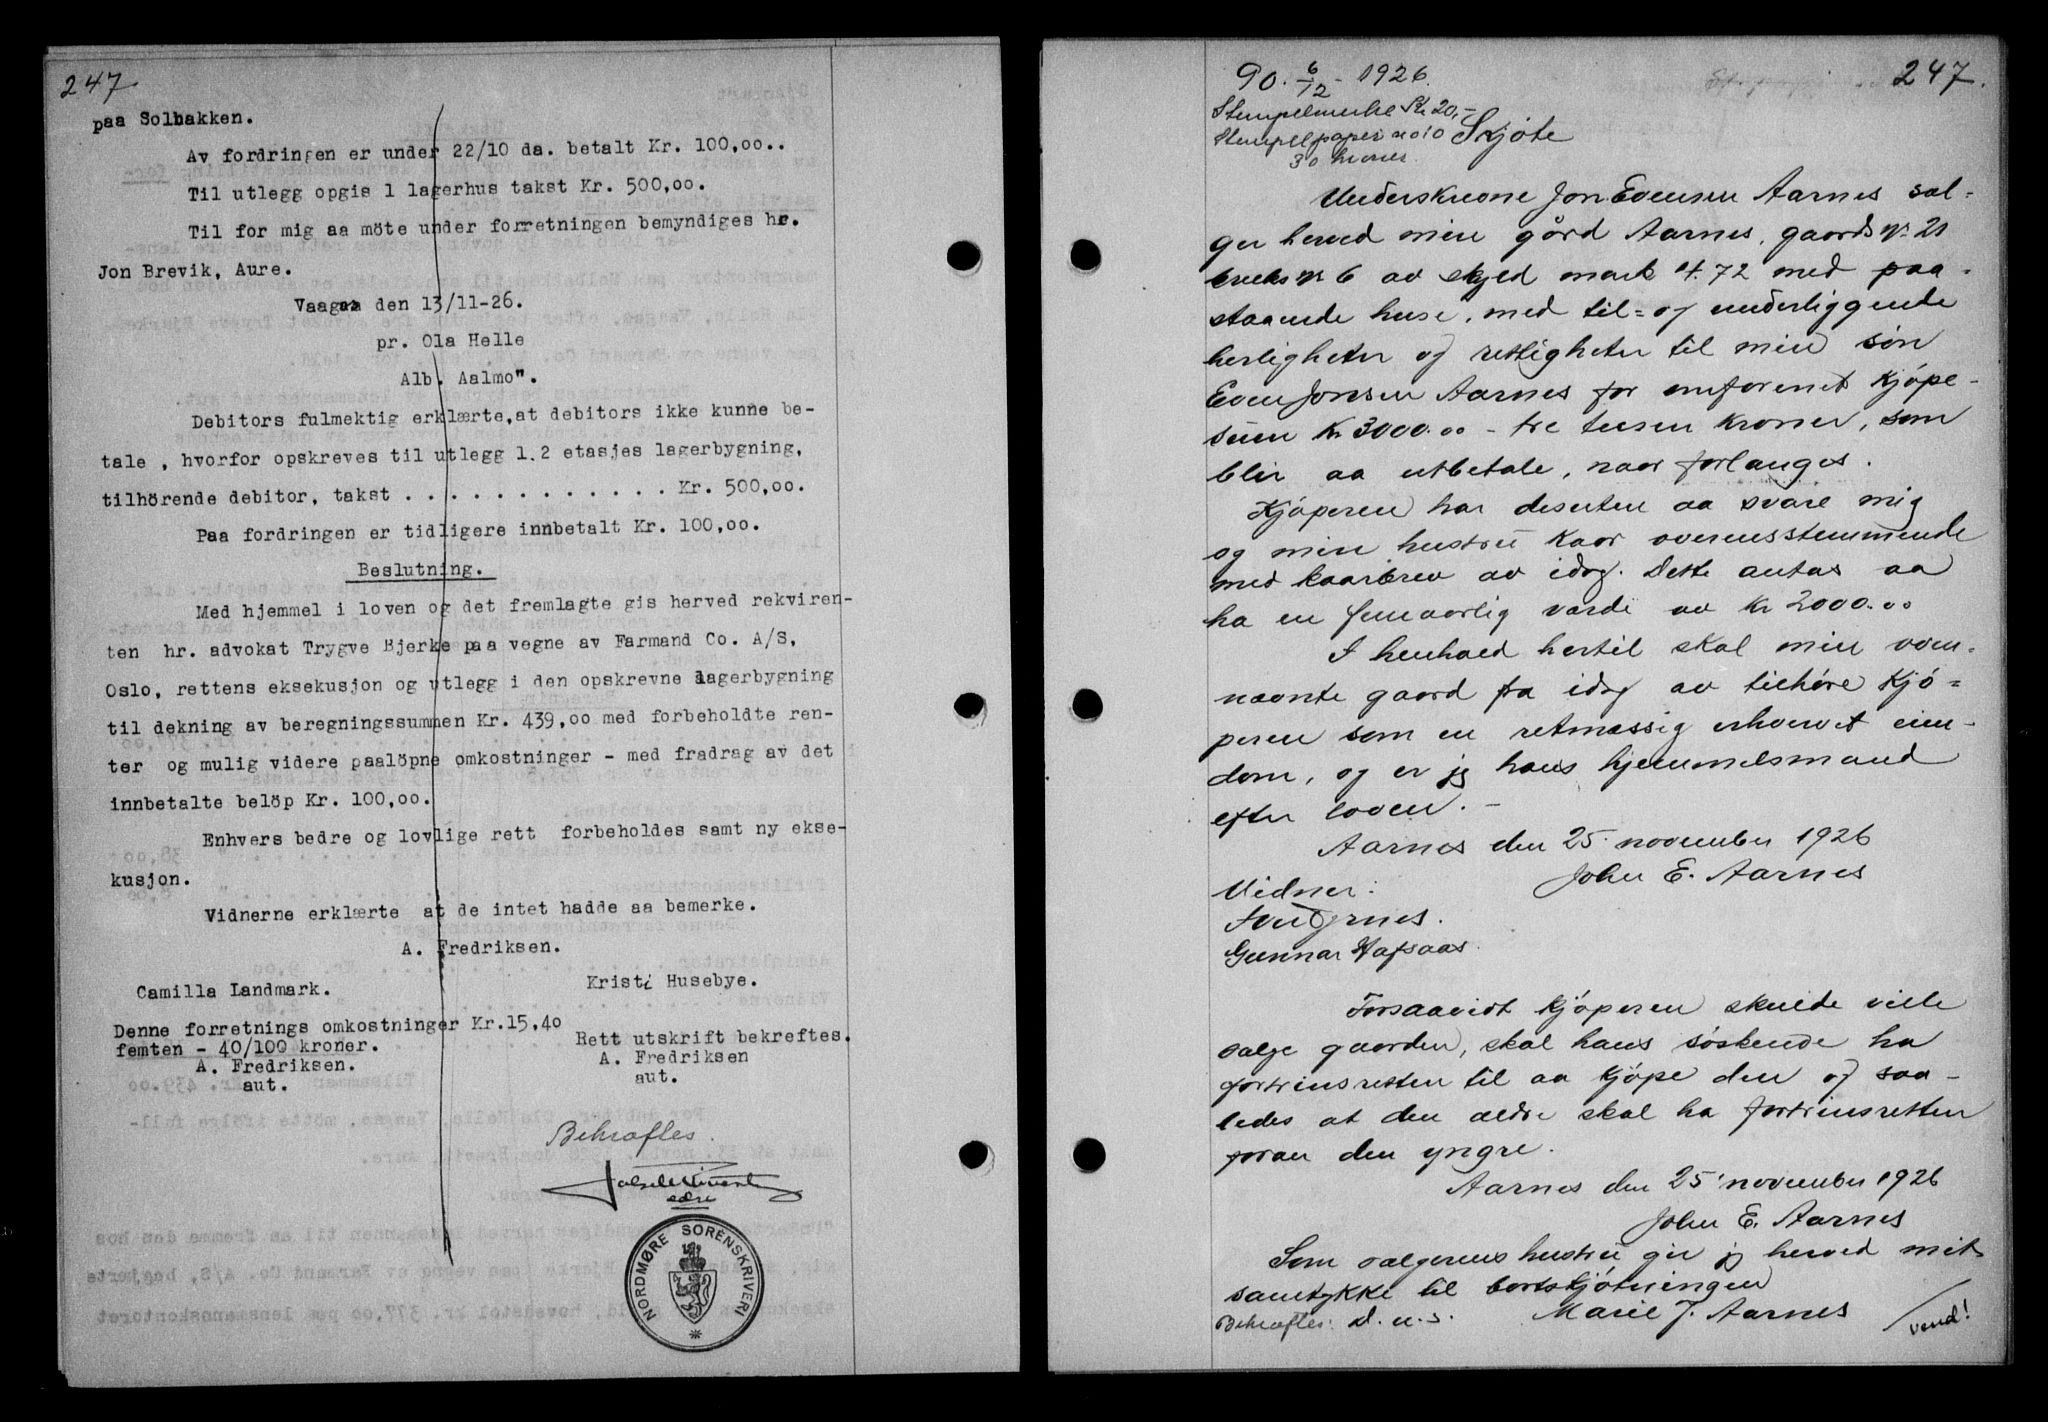 247
paa Solbakken.
Av fordringen er under 22/10 da. betalt Kr. 100,oo..
Til utlegg opgis 1 lagerhus takst Kr. 500,oo.
Til for mig aa möte under forretningen bemyndiges hr.
Jon Brevik, Aure.
Vaagan den 13/11-26.
pr. Ola Helle
Alb. Aalmo".
Debitors fulmektig erklærte, at debitors ikke kunne be-
tale , hvorfor opskreves til utlegg 1.2 etasjes lagerbygning,
tilhörende debitor, takst . . . . . . . . . . . . Kr. 500,oo.
Paa fordringen er tidligere innbetalt Kr. 100,oo.
Beslutning.
Med hjemmel i loven og det fremlagte gis herved rekviren-
ten hr. advokat Trygve Bjerke paa vegne av Farmand Co. A/S,
Oslo, rettens eksekusjon og utlegg i den opskrevne lagerbygning
til dekning av beregningssummen Kr. 439,oo med forbeholdte ren-
ter og mulig videre paalöpne omkostninger - med fradrag av det
innbetalte belöp Kr. 100,oo.
Enhvers bedre og lovlige rett forbeholdes samt ny ekse-
kusjon.
Vidnerne erklærte at de intet hadde aa bemerke.
A. Fredriksen.
Camilla Landmark. Kristi Husebye.
Denne forretnings omkostninger Kr.15,40
femten - 40/100 kroner.
A. Fredriksen.
aut.
Rett utskrift bekreftes.
A. Fredriksen
aut.
Bekræftes.
NORDMØRE SORENSKRIVERI
247.
90. 6/12 - 1926.
Stempelmerke Kr 20,-
Stempelpapir no 10
30 kroner.
Skjöte
Underskrevne Jon Evensen Aarnes sæl-
ger herved min gård Aarnes, gaards nr 21
bruks nr 6 av skyld mark 4.72 med paa-
staaende huse, med til- og underliggende
herligheter og rettigheter til min sön
Even Jonsen Aarnes for omforenet kjöpe-
sum Kr 3000.oo - tre tusen kroner, som
blir aa utbetale, naar forlanges.
Kjöperen har desuten aa svare mig
og min hustru kaar overensstemmende
med kaarbrev av idag. Dette antas aa
ha en femaarlig værdi av kr 2000.oo
I henhold hertil skal min oven-
nævnte gaard fra idag av tilhöre kjö-
peren som en retmæssig erhvervet eien-
dom, og er jeg hans hjemmelsmand
efter loven. -
Aarnes den 25. november 1926
John E. Aarnes
Vidner:
Gunnar Hafsaas.
Forsaavidt kjöperen skulde ville
sælge gaarden, skal hans söskende ha
fortrinsretten til aa kjöpe den og saa-
ledes at den ældre skal ha fortrinsretten
foran den yngre.
Aarnes den 25 november 1926
John E. Aarnes
Som sælgerens hustru gir jeg herved mit
samtykke til bortskjötningen
Marie J. Aarnes
Bekræftes: d. u. s.
vend!